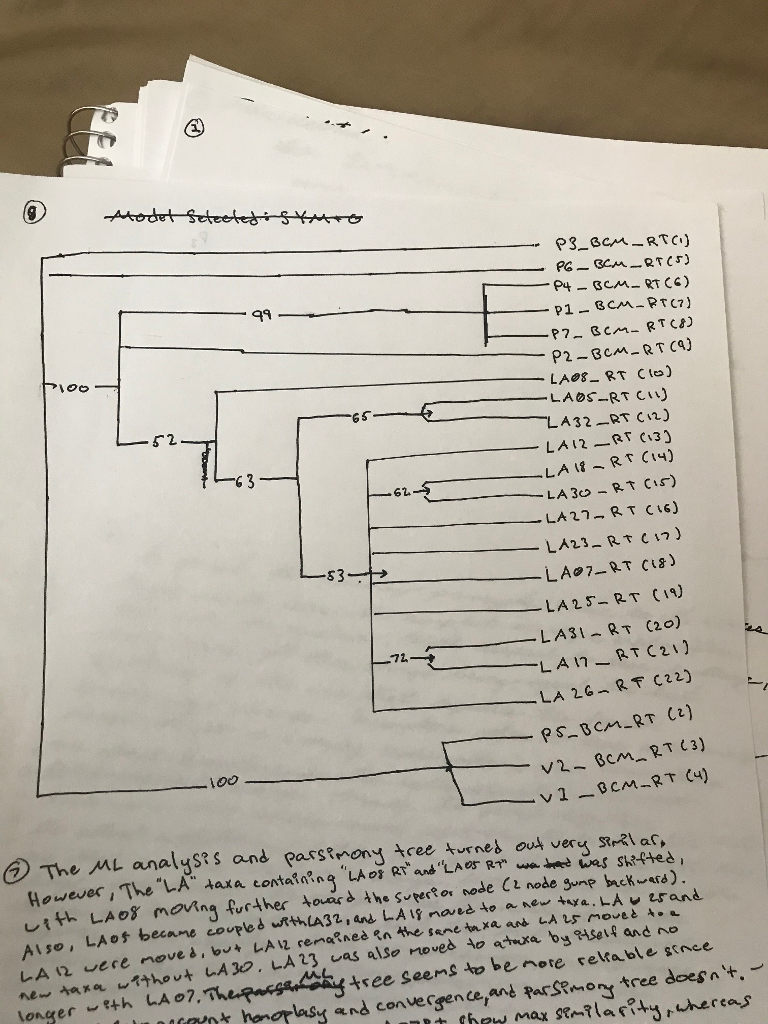 ②
⑧ Model Selected: SYM+G
P3_BCM_RT(1)
P6_BCM_RT(5)
P4_BCM_RT(6)
99
P1_BCM_RT(7)
P7_BCM_RT(8)
P2_BCM_RT(9)
LA08_RT (10)
100
LA05_RT(11)
65
LA32_RT(12)
52
LA12_RT(13)
LA18_RT(14)
63
62
LA30_RT(15)
LA27_RT(16)
LA23_RT(17)
53
LA07_RT(18)
LA25_RT(19)
LA31_RT (20)
72
LA17_RT(21)
LA26_RT(22)
P5_BCM_RT (2)
V2_BCM_RT(3)
100
V1_BCM_RT(4)
⑦ The ML analysis and parsimony tree turned out very similar,
However, The "LA" taxa containing "LA08 RT" and "LA05 RT" was shifted,
with LA08 moving further toward the superior node (2 node gump backward).
Also, LA05 became coupled with LA32, and LA18 moved to a new taxa. LA 25 and
LA12 were moved, but LA12 remained in the same taxa and LA25 moved to a
new taxa without LA30. LA23 was also moved to a taxa by itself and no
longer with LA07. The parsimony ML tree seems to be more reliable since
account homoplasy and convergence, and parsimony tree doesn't. -
show max similarity, whereas